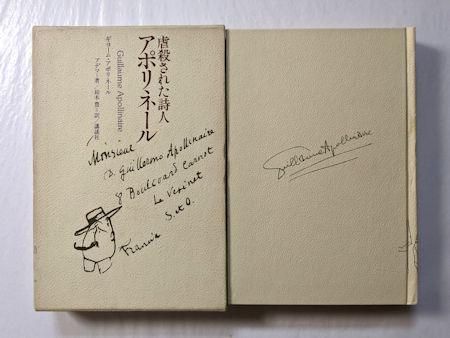 虐殺された詩人
アポリネール
Guillaume Apollinaire
ギヨーム・アポリネール
アデマ=著 鈴木豊=訳 講談社
Monsieur
D. Guillermo Apollinaire
8 Boulevard Carnot
Le Vésinet
S. et O.
Francia
Guillaume Apollinaire